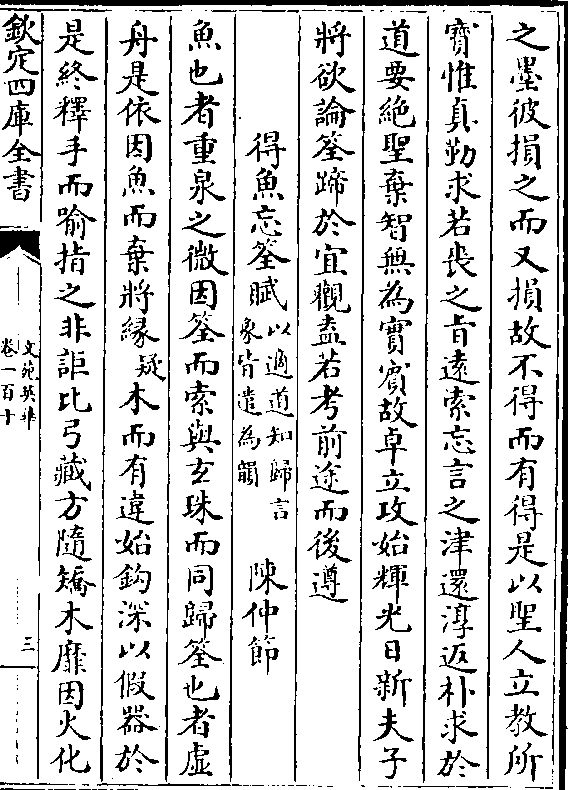 之墨彼損之而又損故不得而有得是以聖人立教所
寳惟真勤求若喪之㫖遠索忘言之津還淳返朴求於
道要絶聖棄智無為寳賔故卓立攻始輝光日新夫子
將欲論筌蹄於宜觀盍若考前途而後遵
得魚忘筌賦以適道知歸言象皆遣為韻 陳仲節
魚也者重泉之微因筌而索與玄珠而同歸筌也者虚
舟是依因魚而棄將縁疑木而有違始鈎深以假器於
是終釋手而喻指之非詎比弓藏方隨矯木靡因火化
欽定四庫全書
文苑英華
卷一百十
三